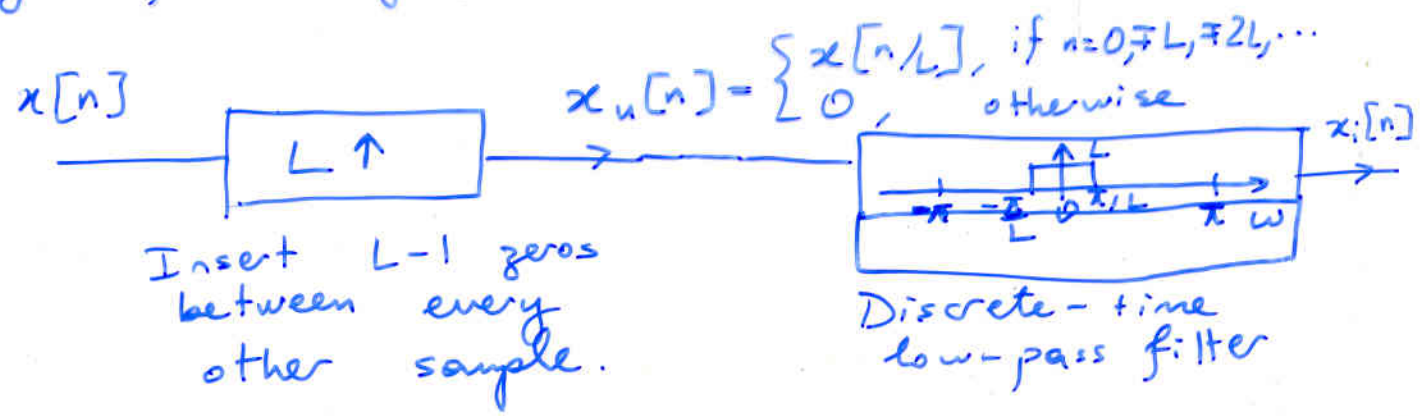 x[n]
L ↑
x_u[n] = { x[n/L], if n=0,∓L,∓2L,...
0, otherwise
x_i[n]
L
-π -π/L 0 π/L π ω
Insert L-1 zeros
between every
other sample.
Discrete-time
low-pass filter